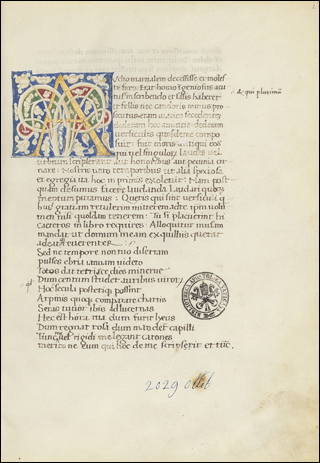 Vdio martialem decessisse et moles
te fero. Erat homo ingeniosus acu
& qui plurimũ
tus in scribendo et salis haberet
et fellis nec candoris minus pro
secutus eram viatico secedentem
dederam hoc amicitie dederam
versiculis quos de me compo
suit. fuit moris antiqui eos
qui vel singulorũ laudes vel
urbium scripserant aut honoribus aut pecunia or
nare. Nostris vero temporibus ut alia speciosa
et egregia ita hoc in primis exolevit. Nam post
quam desiimus facere laudanda laudari quoqꝫ
ineptum putamus. Queris qui sint versiculi qui
bus gratiam retulerim mitterem ad te ipm volu
men nisi quosdam tenerem. Tu si placuerint hi
caeteros in libro requires. Alloquitur musam
mandat ut domum meam exquiliis querat
adeat reverenter
Sed ne tempore non tuo disertam
pulses ebria ianuam videto
Totos dat tetrice dies minerve
Dum centum studet auribus viror
Hoc secula posteriqꝫ possint
Arpinis quoqꝫ comparare chartis
Seras tutior ibis ad lucernas
Hec est hora tua dum furit lyeus
Dum regnat rosa dum madent capilli
Tunc me vel rigidi me legant catones
Merito ne eum qui hec de me scripserit et tũc
2029 Ottob